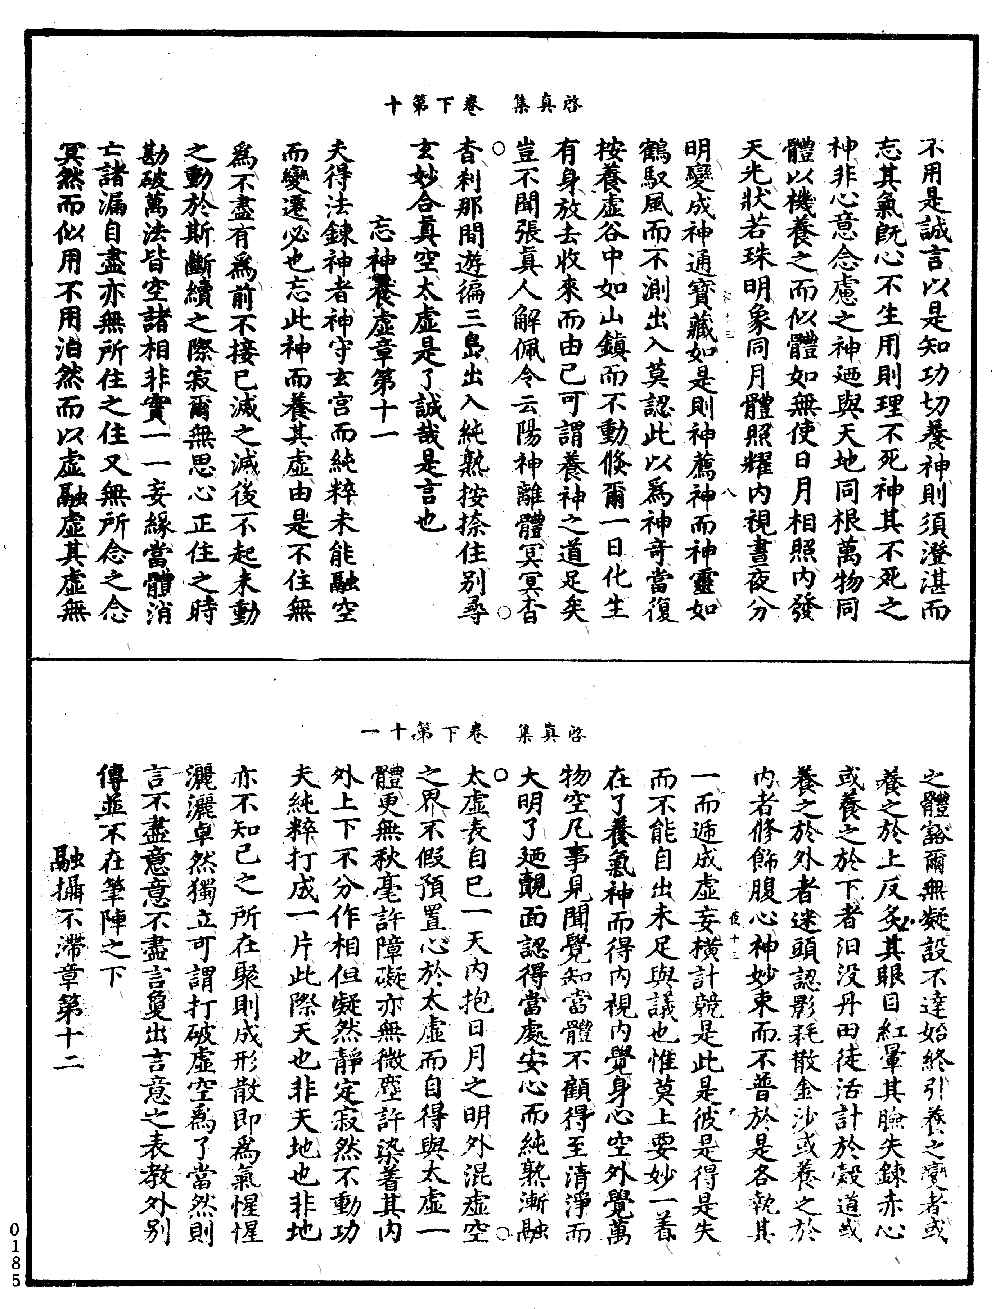 啓真集　卷下第十
不用是誠言以是知功切養神則須澄湛而
志其氣既心不生用則理不死神其不死之
神非心意念慮之神廼與天地同根萬物同
體以機養之而似體如無使日月相照內發
天光狀若珠明象同月體照耀內視晝夜分
明變成神通寶藏如是則神薦神而神靈如
鶴馭風而不測出入莫認此以爲神奇當復
按養虛谷中如山鎮而不動倏爾一日化生
有身放去收來而由己可謂養神之道足矣
豈不聞張真人解佩令云陽神離體冥冥杳
杳刹那間遊徧三島出入純熟按捺住別尋
玄妙合真空太虛是了誠哉是言也
忘神養虛章第十一
夫得法鍊神者神守玄宮而純粹未能融空
而變遷必也忘此神而養其虛由是不住無
爲不盡有爲前不接已滅之滅後不起未動
之動於斯斷續之際寂爾無思心正住之時
勘破萬法皆空諸相非實一一妄緣當體消
亡諸漏自盡亦無所住之住又無所念之念
冥然而似用不用泊然而以虛融虛其虛無
啓真集　卷下第十一
之體豁爾無礙設不達始終引養之變者或
養之於上反炙其眼目紅暈其臉失鍊赤心
或養之於下者汩没丹田徒活計於穀道或
養之於外者迷頭認影耗散金沙或養之於
內者修飾腹心神妙束而不普於是各執其
一而遞成虛妄橫計競是此是彼是得是失
而不能自出未足與議也惟莫上要妙一着
在了養氣神而得內視內覺身心空外覺萬
物空凡事見聞覺知當體不顧得至清淨而
大明了廼覿面認得當處安心而純熟漸融
太虛表自己一天內抱日月之明外混虛空
之界不假預置心於太虛而自得與太虛一
體更無秋毫許障礙亦無微塵許染著其內
外上下不分作相但凝然靜定寂然不動功
夫純粹打成一片此際天也非天地也非地
亦不知己之所在聚則成形散即爲氣惺惺
灑灑卓然獨立可謂打破虛空爲了當然則
言不盡意意不盡言敻出言意之表教外別
傳並不在筆陣之下
融攝不滯章第十二
0185